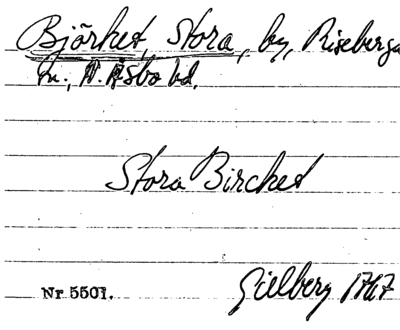 Björket, Stora, by, Riseberga
sn., N. Åsbo hd.
Stora Bircket
Gielberg 1767
Nr 5501.